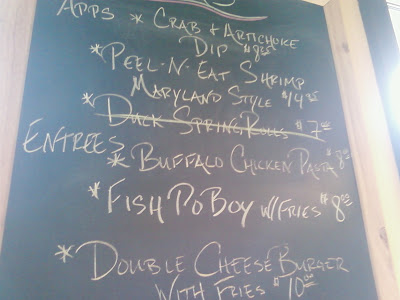 APPS * CRAB & ARTICHOKE
DIP
* PEEL-N-EAT SHRIMP
MARYLAND STYLE
* DUCK SPRING ROLLS $7.00
ENTREES
* BUFFALO CHICKEN PASTA $8.00
* FISH PO BOY W/ FRIES $8.00
* DOUBLE CHEESE BURGER
WITH FRIES $10.00